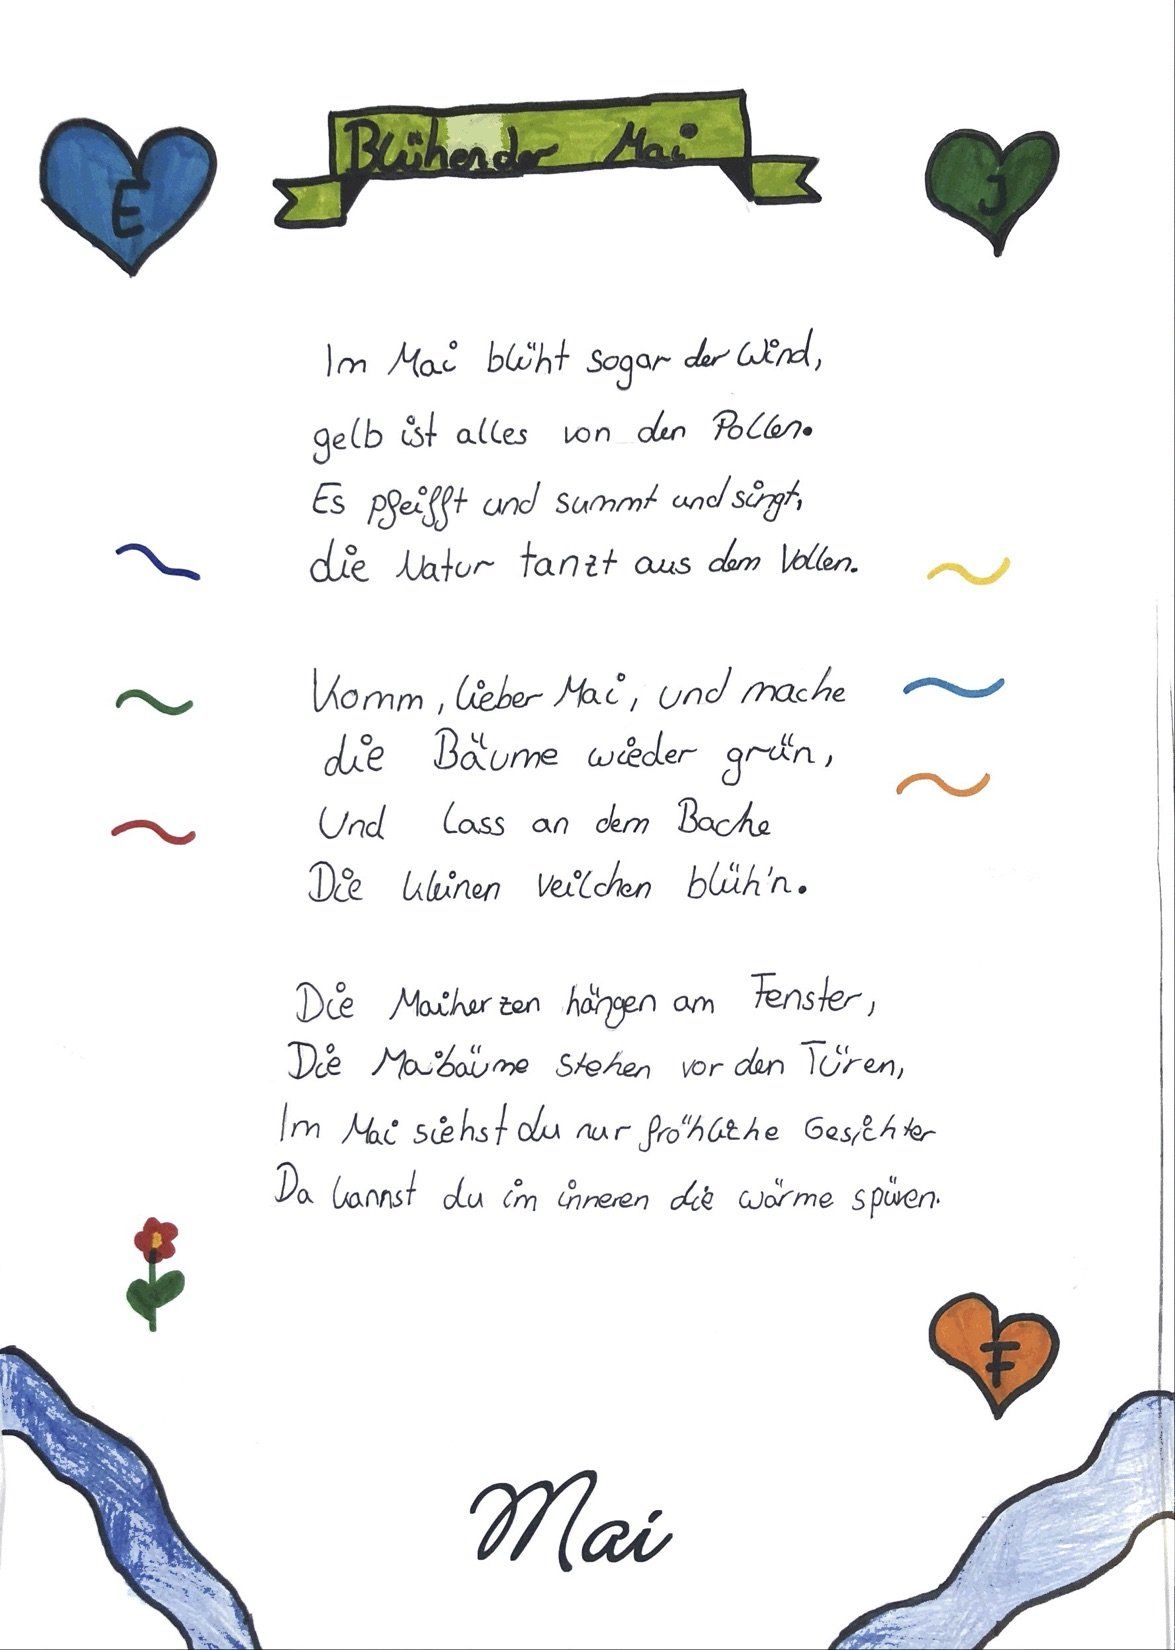 E
Blühender Mai
J
Im Mai blüht sogar der Wind,
gelb ist alles von den Pollen.
Es pfeifft und summt und singt,
die Natur tanzt aus dem Vollen.
Komm, lieber Mai, und mache
die Bäume wieder grün,
Und lass an dem Bache
Die kleinen Veilchen blüh'n.
Die Maiherzen hängen am Fenster,
Die Maibäume stehen vor den Türen,
Im Mai siehst du nur fröhliche Gesichter
Da kannst du im inneren die wärme spüren.
F
Mai